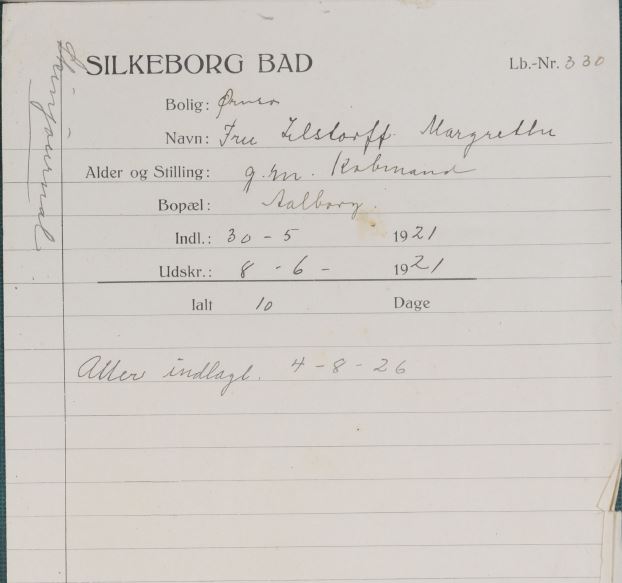 SILKEBORG BAD
Lb.-Nr. 330
Bolig: Ørnsø
Navn: Fru Ilstorff. Margrethe
Alder og Stilling: g. m. Købmand
Bopæl: Aalborg.
Indl.: 30 - 5 1921
Udskr.: 8 - 6 - 1921
Ialt 10 Dage
Atter indlagt. 4 - 8 - 26